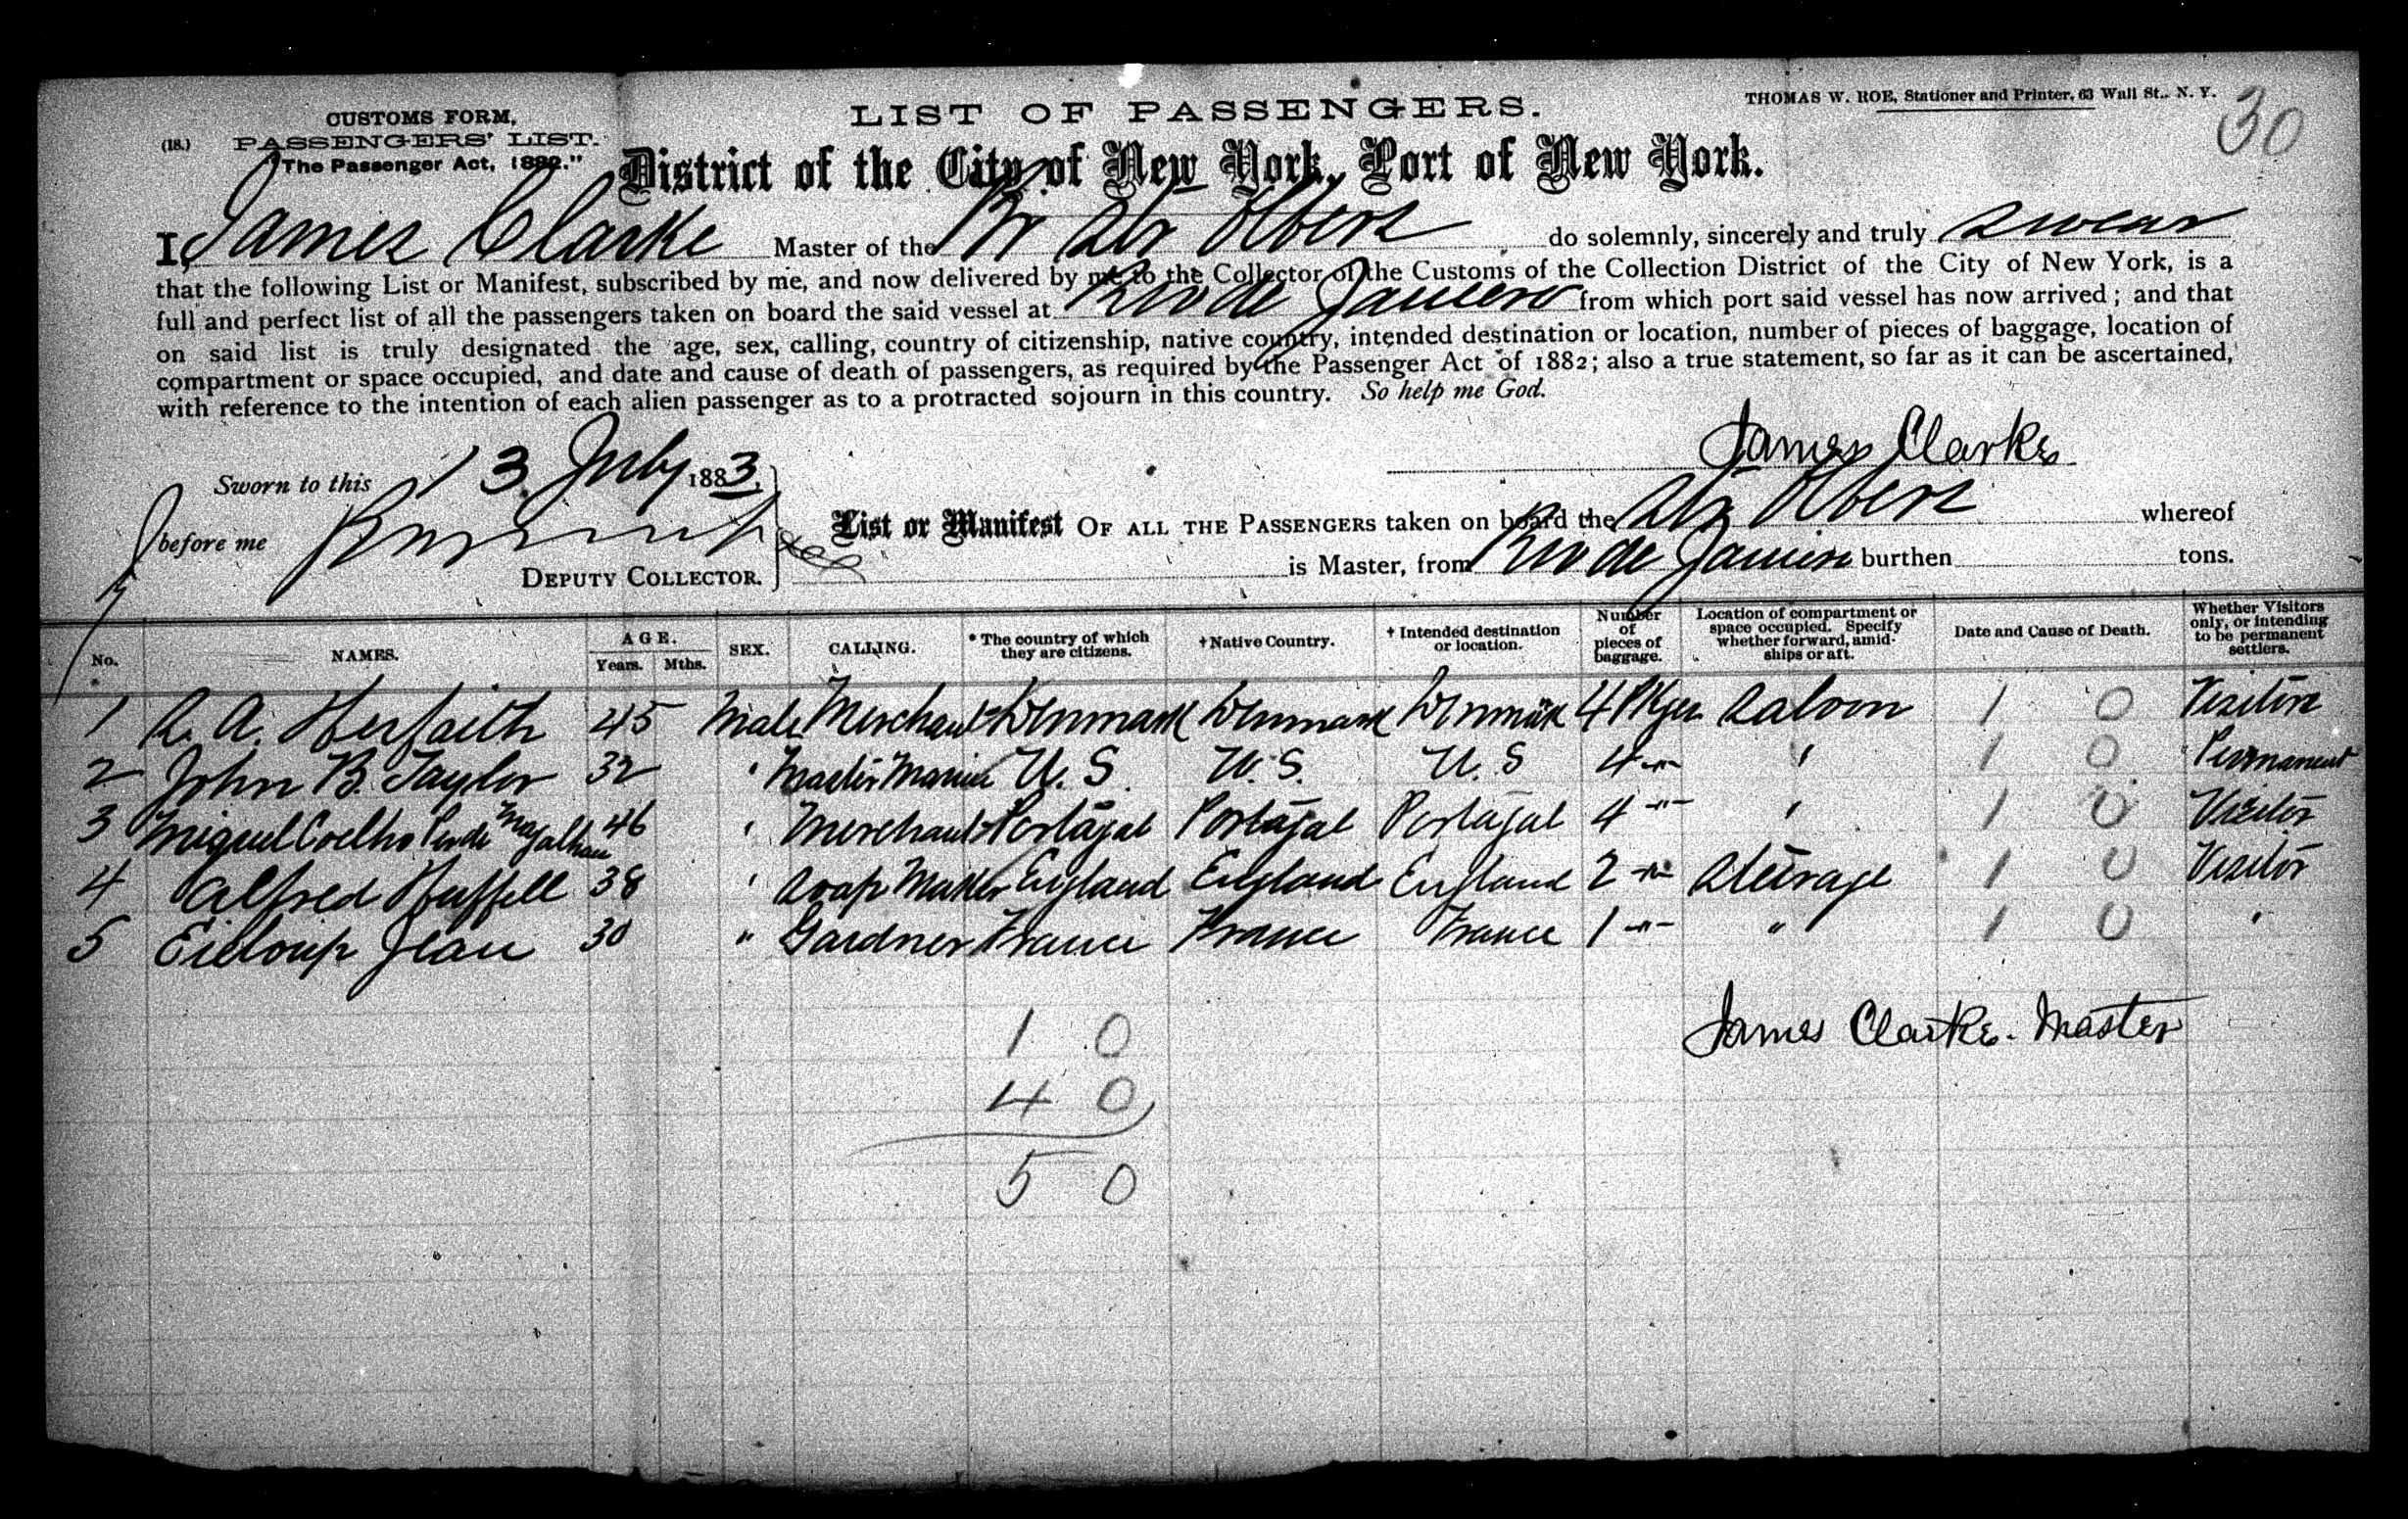 CUSTOMS FORM,
(18.) PASSENGERS' LIST.
"The Passenger Act, 1882."
LIST OF PASSENGERS.
THOMAS W. ROE, Stationer and Printer, 63 Wall St., N. Y.
30
District of the City of New York, Port of New York.
I, James Clarke Master of the Br Str Olbers do solemnly, sincerely and truly swear
that the following List or Manifest, subscribed by me, and now delivered by me to the Collector of the Customs of the Collection District of the City of New York, is a
full and perfect list of all the passengers taken on board the said vessel at Rio de Janiero from which port said vessel has now arrived; and that
on said list is truly designated the age, sex, calling, country of citizenship, native country, intended destination or location, number of pieces of baggage, location of
compartment or space occupied, and date and cause of death of passengers, as required by the Passenger Act of 1882; also a true statement, so far as it can be ascertained,
with reference to the intention of each alien passenger as to a protracted sojourn in this country. So help me God.
James Clarke
Sworn to this 13 July 1883,
before me
DEPUTY COLLECTOR.
List or Manifest OF ALL THE PASSENGERS taken on board the Str Olbers whereof
is Master, from Rio de Janiero burthen tons.
No. NAMES. AGE. Years. Mths. SEX. CALLING. * The country of which they are citizens. † Native Country. † Intended destination or location. Number of pieces of baggage. Location of compartment or space occupied. Specify whether forward, amidships or aft. Date and Cause of Death. Whether Visitors only, or intending to be permanent settlers.
1 A. 45 Male Merchant Denmark Denmark Denmark 4 Pkges Saloon 1 0 Visitor
2 John B. Taylor 32 " Master Marine U. S. U. S. U. S 4 -"- " 1 0 Permanent
3 Miguel Coelho 46 " Merchant Portugal Portugal Portugal 4 -"- " 1 0 Visitor
4 Alfred Huffell 38 " Soap Maker England England England 2 -"- Steerage 1 0 Visitor
5 Jean 30 " Gardner France France France 1 -"- " 1 0 "
James Clarke. Master
1 0
4 0
5 0